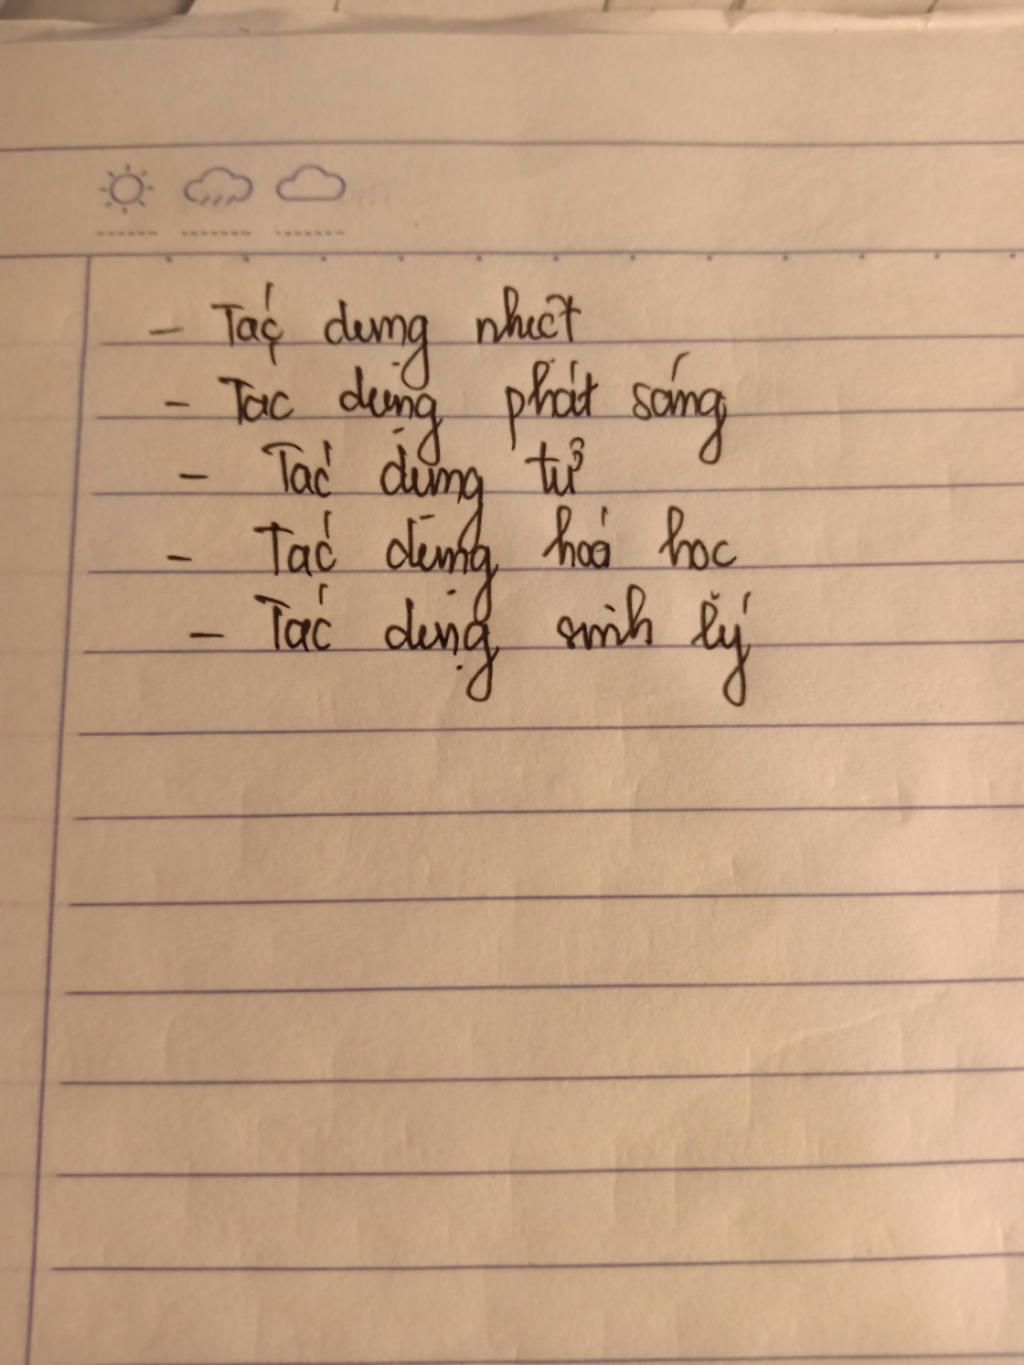 - Tác dụng nhiệt
- Tác dụng phát sáng
- Tác dụng từ
- Tác dụng hoá học
- Tác dụng sinh lý